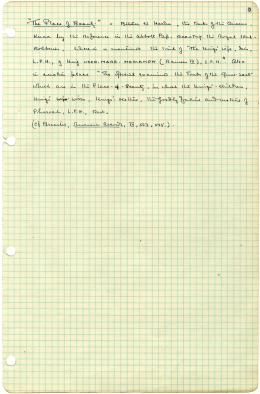 "The Place of Beauty" = Biban el Harim, the Tombs of the Queens
Known by the reference in the Abbott Pap. describing the Royal Tomb
Robberies. Wherein is mentioned the Tomb of "the King's Wife, Isis,
L.P.H., of King USER.MARE. MERIAMON (Ramses III), L.P.H." Also
in another place "The Officials examined the Tombs of the Great Seat
which are in the Place-of-Beauty, in which the King's-Children,
King's wives, King's Mothers, the goodly fathers and mothers of
Pharaoh, L.P.H., rest.
(Cf Breasted, Ancient Records, IV,